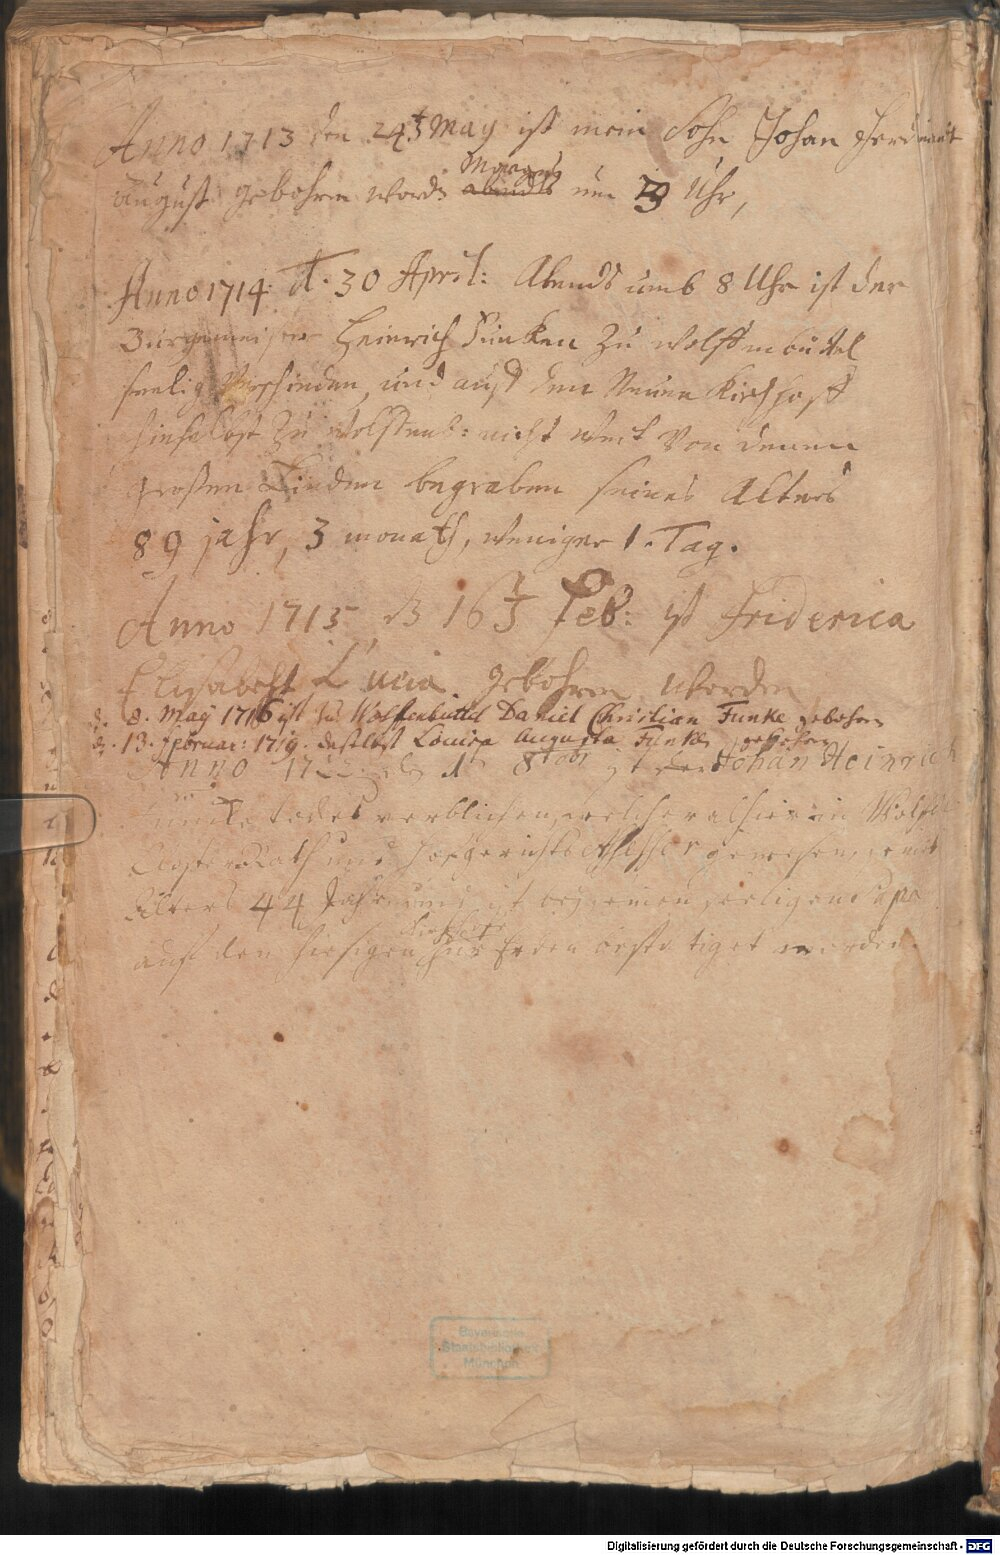 Anno 1713 den 24t May ist mein Sohn Johan Ferdinant
August gebohren word. abends Morgens um 3 Uhr,
Anno 1714. d. 30 April: Abends umb 8 Uhr ist der
Burgemeister Heinrich Funken zu Wolffenbüttel
seelig verschieden, und auf dem Neuen Kirchhoff
hieselbst zu Wolffenb: nicht weit von denen
großen Linden begraben seines Alters
89 jahr, 3 monath, weniger 1. Tag.
Anno 1715 d 16t Feb: ist Friderica
Elisabeht Lucia gebohren worden
d. 8. May 1716 ist zu Wolfenbüttel Daniel Christian Funke gebohren
d. 13. Februar: 1719. daselbst Louisa Augusta Funken gebohren
Anno 1722 8tobr ist der Johan Heinrich
Funcke todes verblichen, welcher alhier in
Closter Rath und Hofgerichts Assessor gewesen,
Alters 44 Jahr und ist bey meinen seeligen Papa
auf den hiesigen Kirchhoffe zur Erden bestetiget worden.
Bayerische
Staatsbibliothek
München
Digitalisierung gefördert durch die Deutsche Forschungsgemeinschaft - DFG